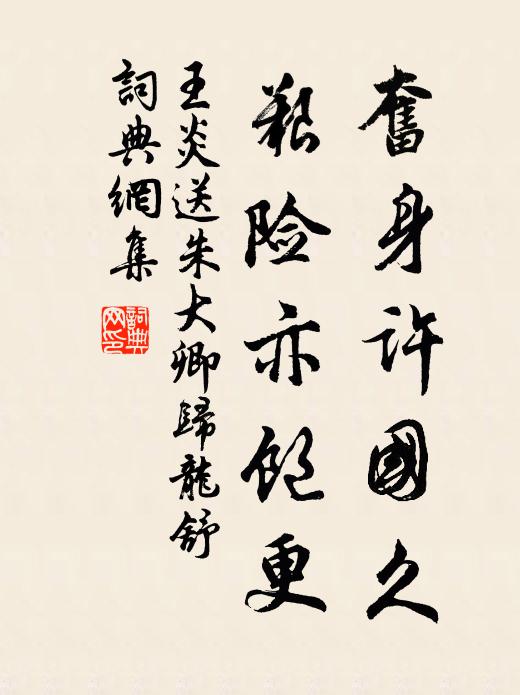 奮身許國久
艱险亦飽更
王炎送朱大卿歸龍舒
詞典網集
詞典
网印